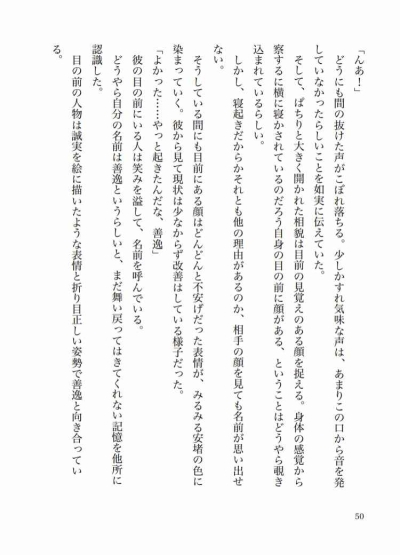 「んあ！」
　どうにも間の抜けた声がこぼれ落ちる。少しかすれ気味な声は、あまりこの口から音を発
していなかったらしいことを如実に伝えていた。
　そして、ぱちりと大きく開かれた相貌は目前の見覚えのある顔を捉える。身体の感覚から
察するに横に寝かされているのだろう自身の目の前に顔がある、ということはどうやら覗き
込まれているらしい。
　しかし、寝起きだからかそれとも他の理由があるのか、相手の顔を見ても名前が思い出せ
ない。
　そうしている間にも目前にある顔はどんどんと不安げだった表情が、みるみる安堵の色に
染まっていく。彼から見て現状は少なからず改善はしている様子だった。
「よかった……やっと起きたんだな、善逸」
　彼の目の前にいる人は笑みを溢して、名前を呼んでいる。
　どうやら自分の名前は善逸というらしいと、まだ舞い戻ってはきてくれない記憶を他所に
認識した。
　目の前の人物は誠実を絵に描いたような表情と折り目正しい姿勢で善逸と向き合ってい
る。
50